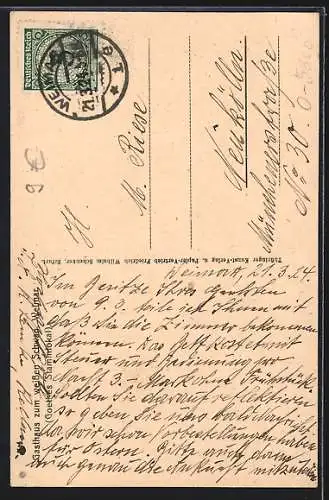 Deutsches Reich
WEIMAR
21.3.24
* 1 e
H
M. Riese
Neukölln
Münchenerstraße
No 30.
Thüringer Kunst-Verlag u. Papier-Vertrieb Friedrich Wilhelm Schmutzer, Erfurt.
Gasthaus zum weißen Schwan (Weimar)
(Goethes Stammlokal)
Weimar, 21.3.24
Im Besitze Ihres
von 9.3. teile ich Ihnen mit
daß Sie die Zimmer bekommen
können. Das Bett kostet mit
Steuer und Bedienung pro
Nacht 3. Mark ohne Frühstück.
Sollten Sie darauf reflektieren
so geben Sie uns bald
da wir schon Vorbestellungen haben
für Ostern. Bitte auch dann
auch genau die Ankunft mitzuteilen